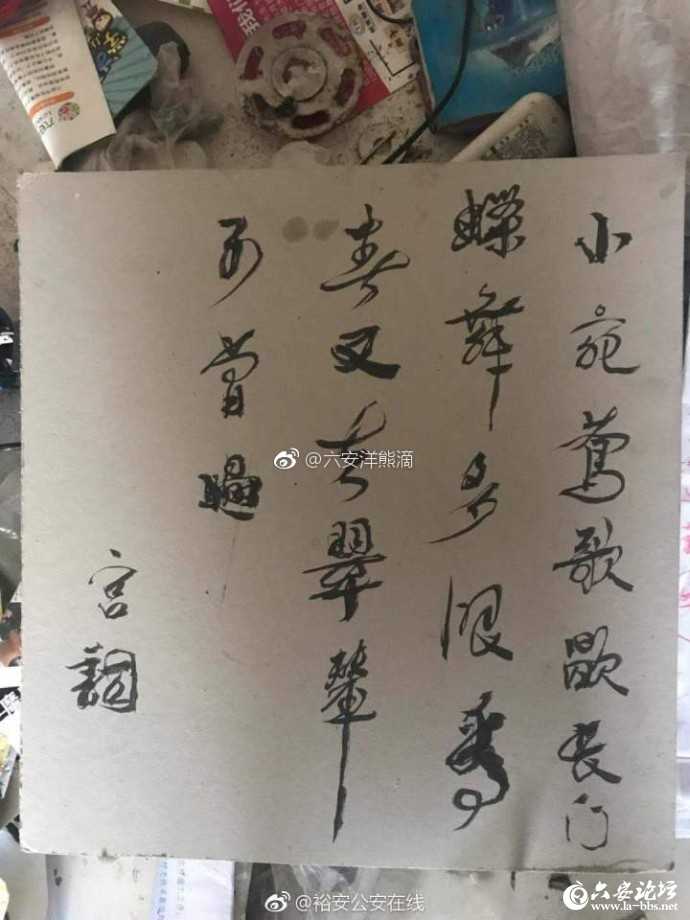 小苑莺歌歇長门
蝶舞多眼看
春又去翠輦
不曾過
宫詞
@六安洋熊滴
@裕安公安在线
六安论坛
www.la-bbs.net